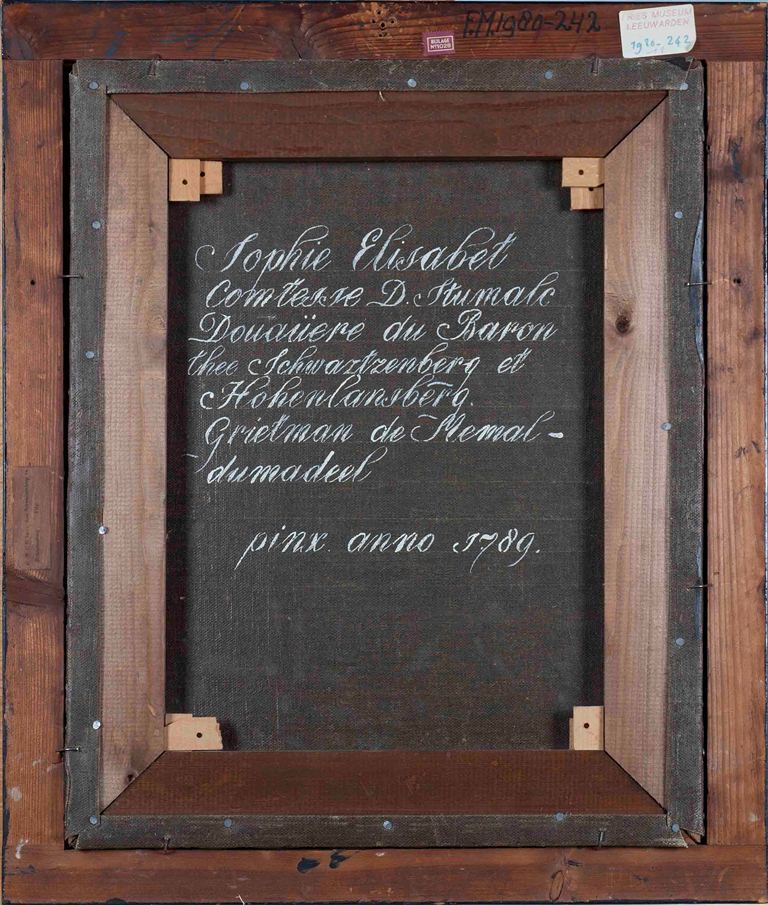 F.M.1980-242
FRIES MUSEUM
LEEUWARDEN
1980-242
BIJLAGE
Sophie Elisabet
Comtesse D. Stumalc
Douaüere du Baron
thee Schwartzenberg et
Hohenlansberg.
Grietman de Memal-
dumadeel
pinx. anno 1789.